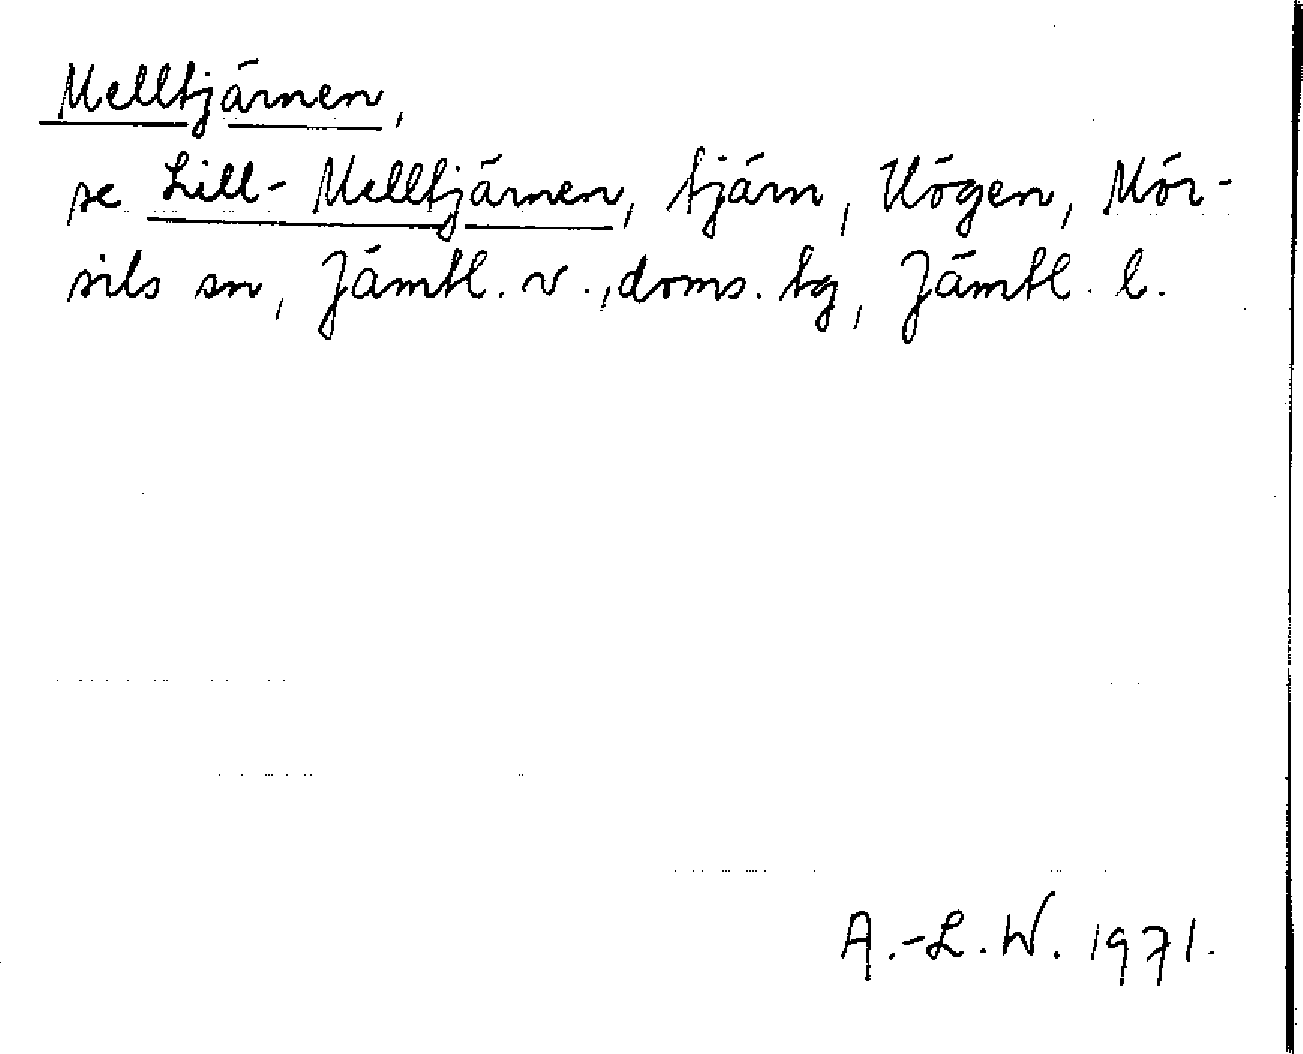 Melltjärnen,
se Lill-Melltjärnen, tjärn, Högen, Mör-
sils sn, Jämtl. v., doms. tg, Jämtl. l.
A.-L. W. 1971.